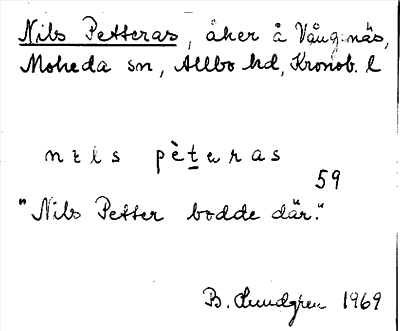 Nils Petteras, åker å Vångnäs,
Moheda sn, Allbo hd, Kronob. l
nɩls pètɐras
59
"Nils Petter bodde där."
B. Lundgren 1969